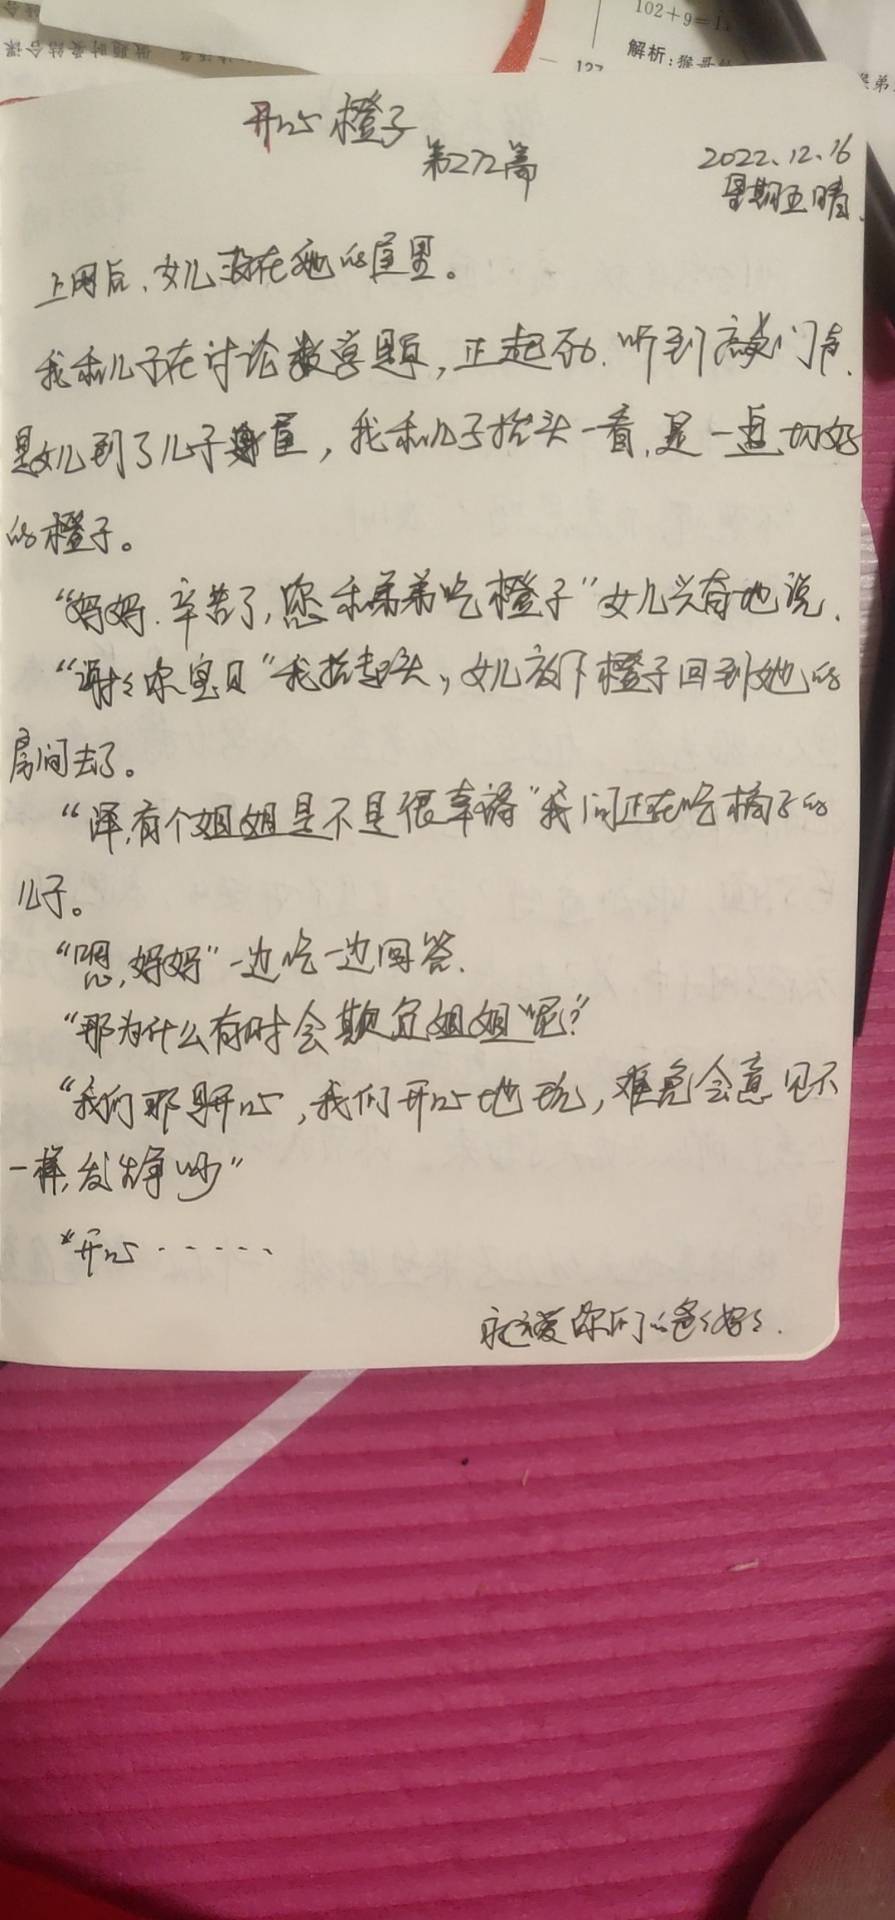 102+9=11
解析:猴哥
开心橙子
第272篇
2022.12.16
星期五晴.
上网后、女儿在她的屋里。
我和儿子在讨论数学题，正起劲.听到敲门声.
是女儿到了儿子屋，我和儿子抬头一看,是一盘切好
的橙子。
“妈妈.辛苦了,您和弟弟吃橙子”女儿兴奋地说.
“谢谢你宝贝”我抬起头,女儿放下橙子回到她的
房间去了。
“泽,有个姐姐是不是很幸福”我问正在吃橘子的
儿子。
“嗯,妈妈”一边吃一边回答.
“那为什么有时会欺负姐姐呢?”
“我们那是开心,我们开心地玩,难免会意见不
一样,发生争吵”
“开心·····
永远爱你们的爸爸妈妈.